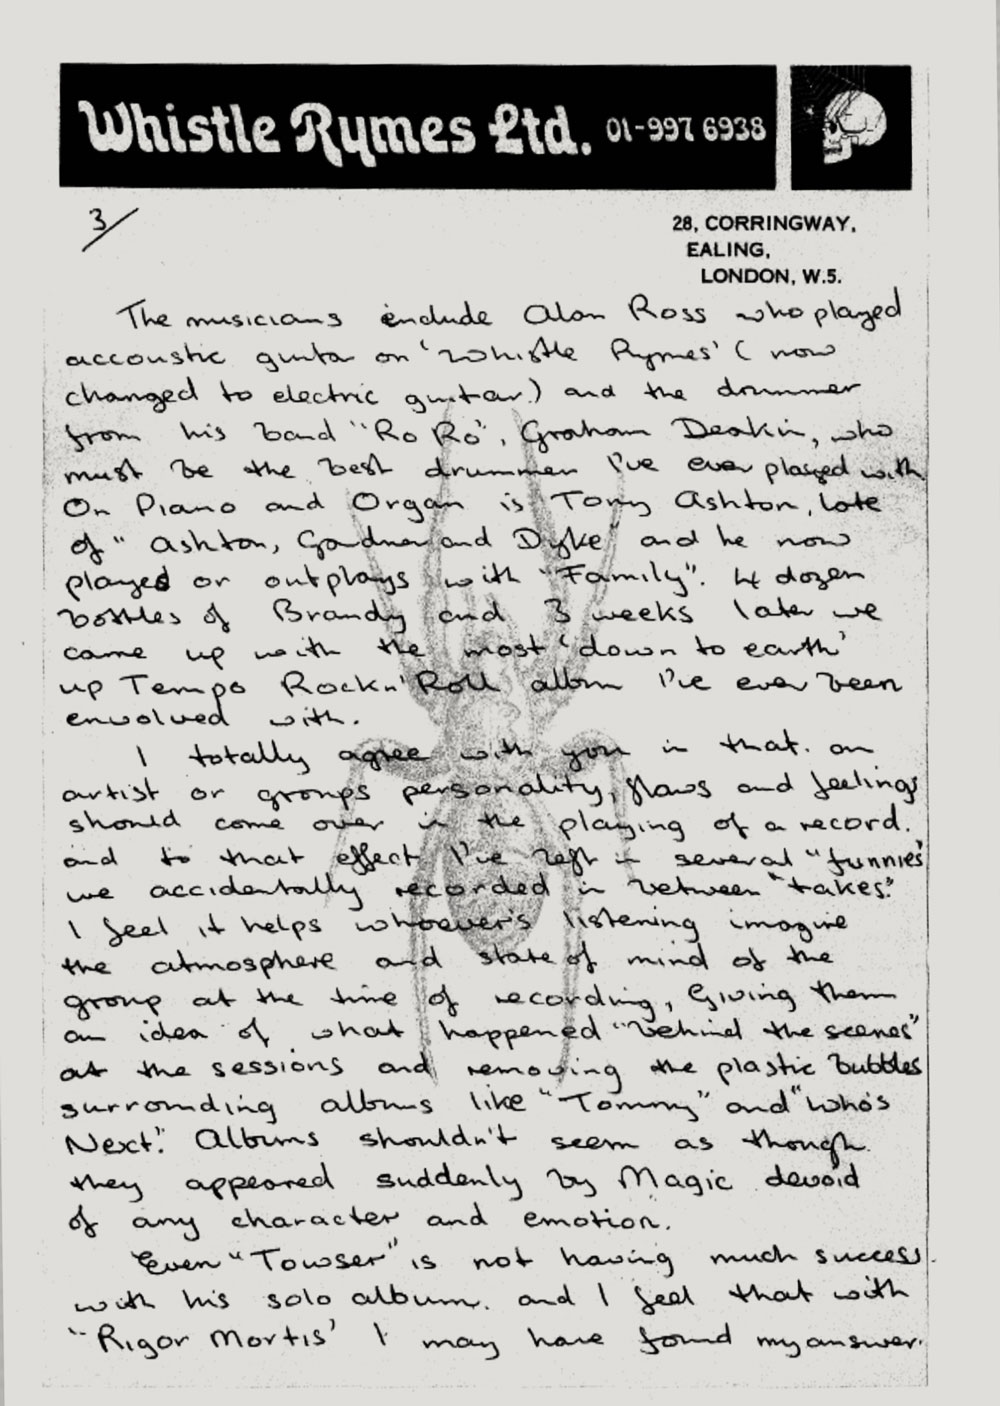 Whistle Rymes Ltd. 01-997 6938
3/
28, CORRINGWAY,
EALING,
LONDON, W.5.
The musicians include Alan Ross who played
accoustic guitar on 'Whistle Rymes' ( now
changed to electric guitar.) and the drummer
from his band "Ro Ro", Graham Deakin, who
must be the best drummer I've ever played with
On Piano and Organ is Tony Ashton, late
of " Ashton, Gardner and Dyke" and he now
played or outplays with "Family". 4 dozen
bottles of Brandy and 3 weeks later we
came up with the most 'down to earth'
up Tempo Rock n' Roll album I've ever been
envolved with.
I totally agree with you in that. an
artist or groups personality, flaws and feelings
should come over in the playing of a record.
and to that effect I've left in several "funnies"
we accidentally recorded in between "takes."
I feel it helps whoever's listening imagine
the atmosphere and state of mind of the
group at the time of recording, Giving them
an idea of what happened "behind the scenes"
at the sessions and removing the plastic bubbles
surrounding albums like "Tommy" and "Who's
Next." Albums shouldn't seem as though
they appeared suddenly by Magic devoid
of any character and emotion.
Even "Towser" is not having much success
with his solo album. and I feel that with
"Rigor Mortis' I may have found my answer.